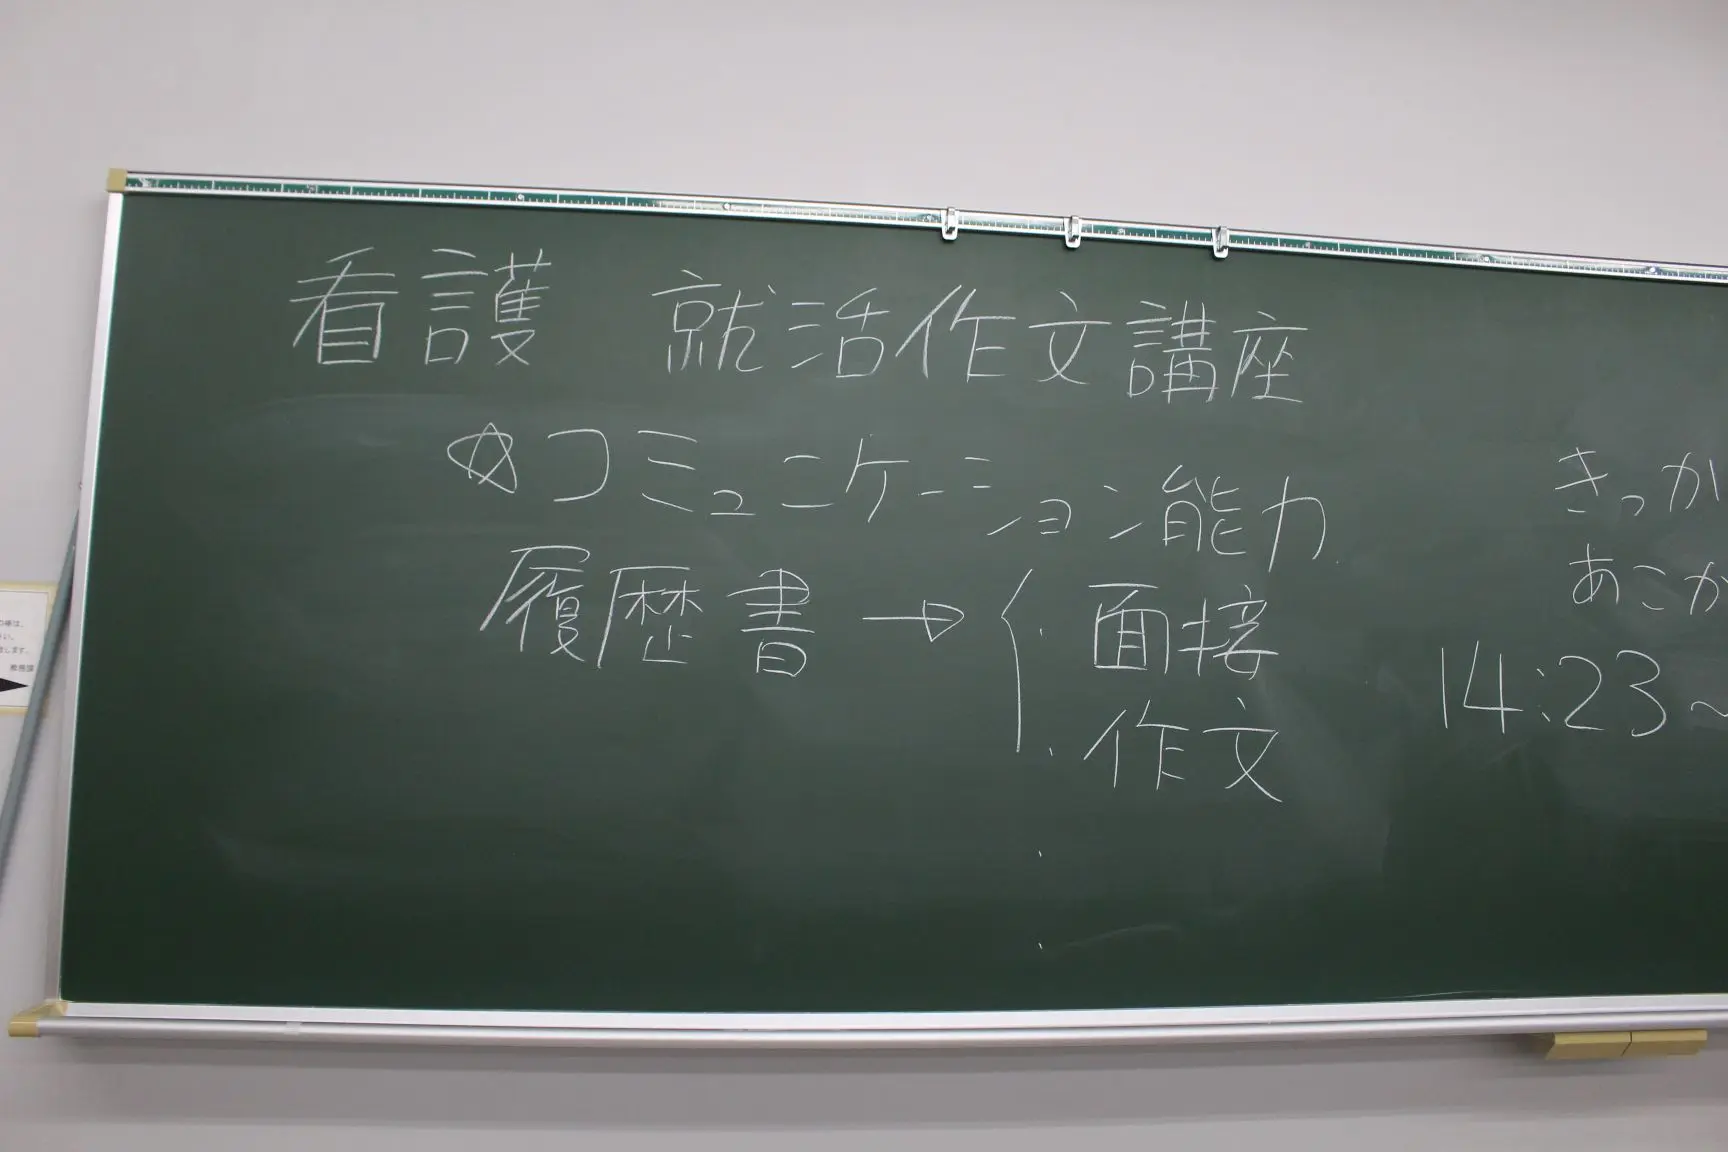 看護 就活作文講座
☆コミュニケーション能力
履歴書→{・面接
・作文
きっか
あこが
14:23~